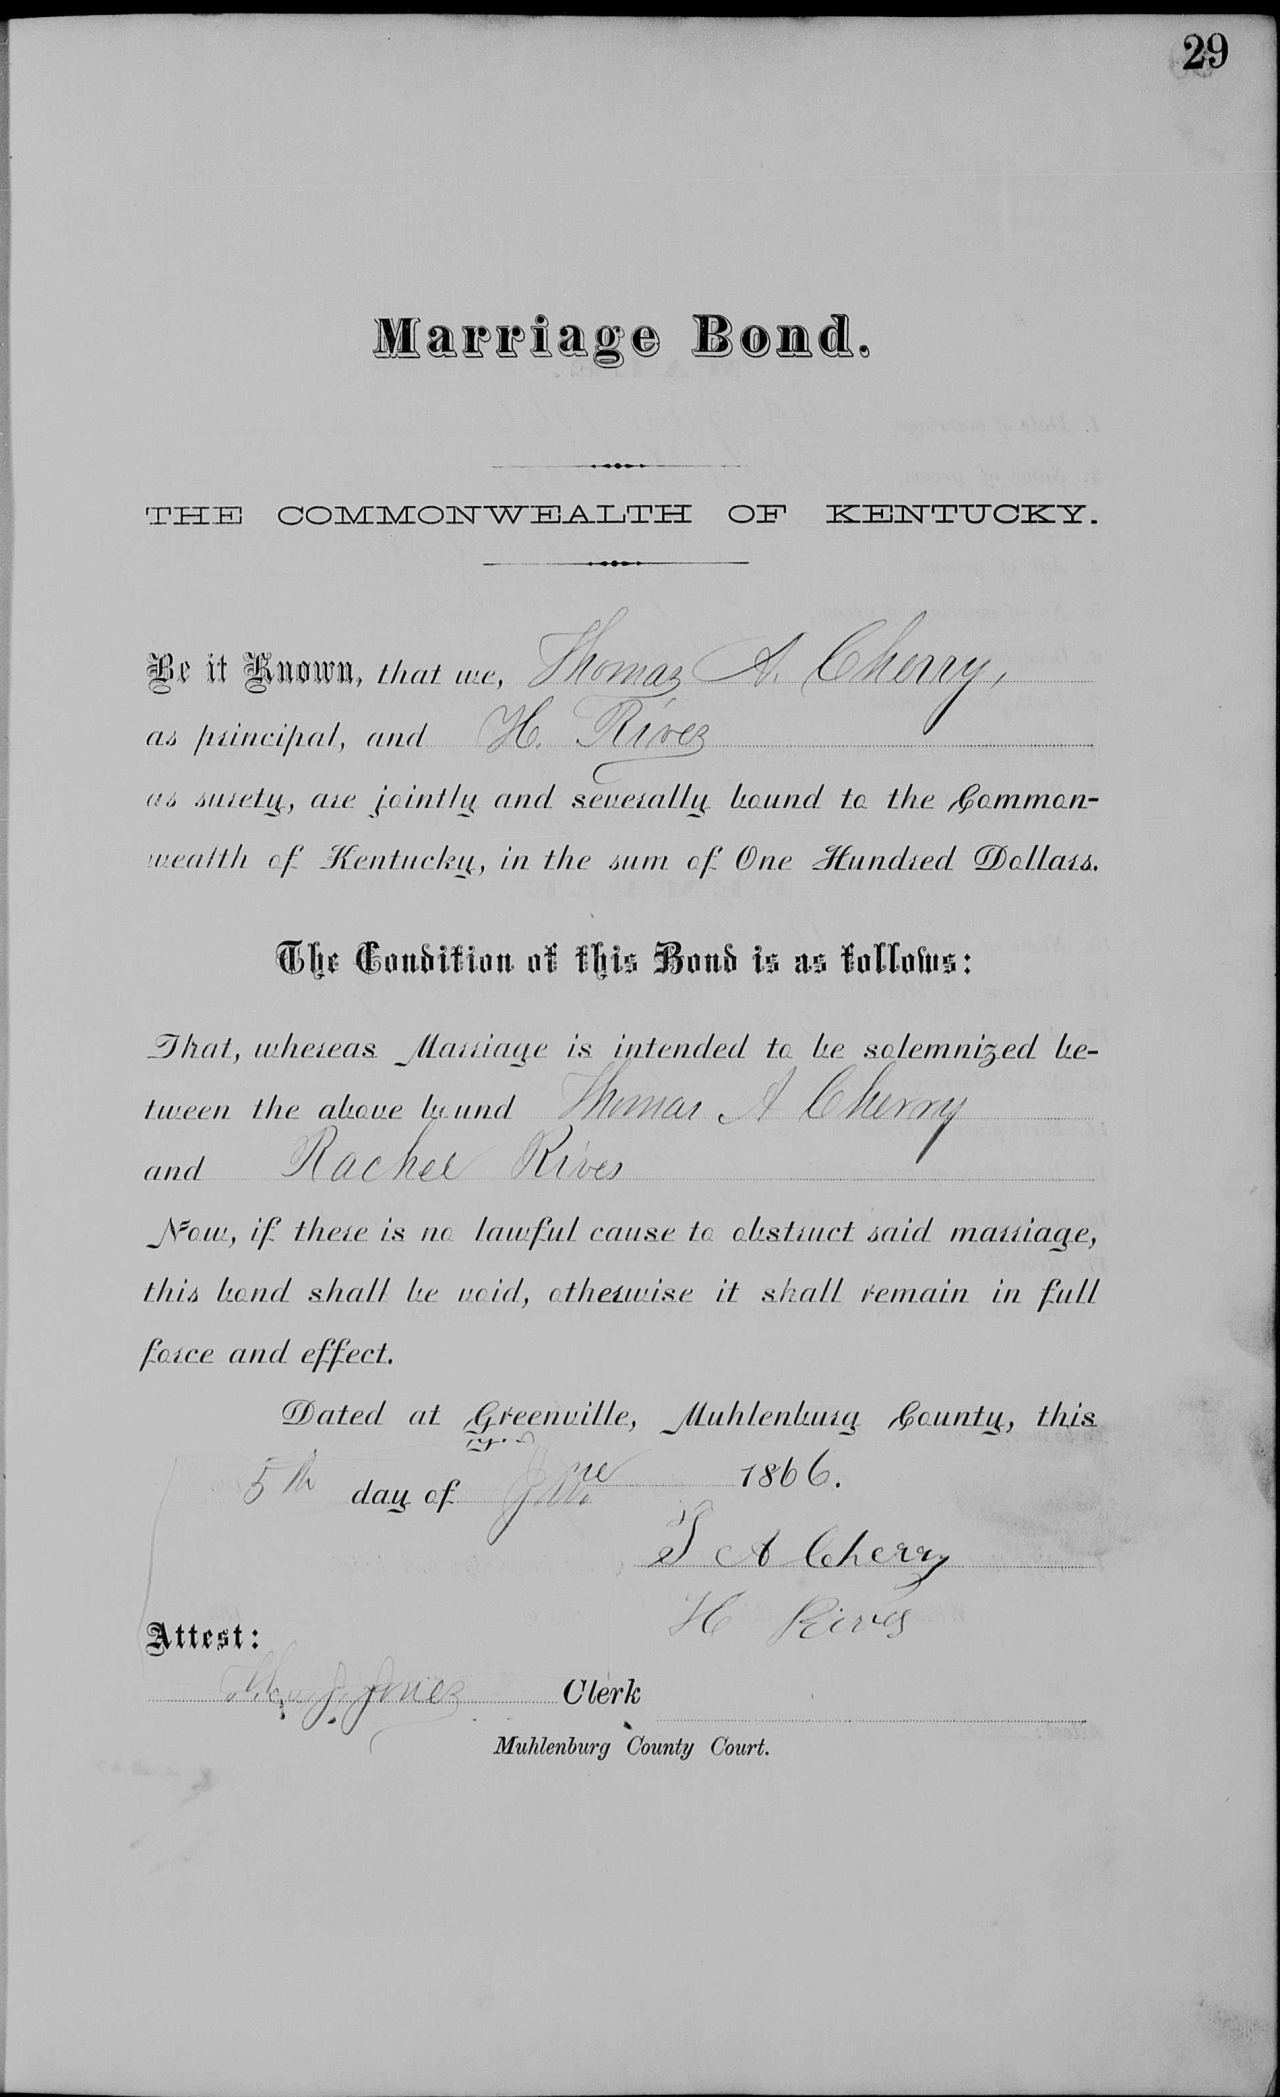 29
Marriage Bond.
THE COMMONWEALTH OF KENTUCKY.
Be it Known, that we, Thomas A. Cherry,
as principal, and H. Rives
as surety, are jointly and severally bound to the Common-
wealth of Kentucky, in the sum of One Hundred Dollars.
The Condition of this Bond is as follows:
That, whereas Marriage is intended to be solemnized be-
tween the above bound Thomas A Cherry
and Rachel Rives
Now, if there is no lawful cause to obstruct said marriage,
this bond shall be void, otherwise it shall remain in full
force and effect.
Dated at Greenville, Muhlenburg County, this
5th day of June 1866.
T A Cherry
H Rives
Attest:
Tho. J. Jones Clerk
Muhlenburg County Court.